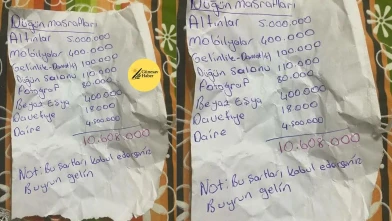 Düğün masrafları
Altınlar 5.000.000
Mobilyalar 400.000
Gelinlik-Damatlık 100.000
Düğün Salonu 110.000
Fotoğraf 80.000
Beyaz Eşya 400.000
Davetiye 18.000
Daire 4.500.000
10.608.000
Not: Bu şartları kabul ederseniz
Buyrun gelin
Haber
Düğün masrafları
Altınlar 5.000.000
Mobilyalar 400.000
Gelinlik-Damatlık 100.000
Düğün Salonu 110.000
Fotoğraf 80.000
Beyaz Eşya 400.000
Davetiye 18.000
Daire 4.500.000
10.608.000
Not: Bu şartları kabul ederseniz
Buyrun gelin